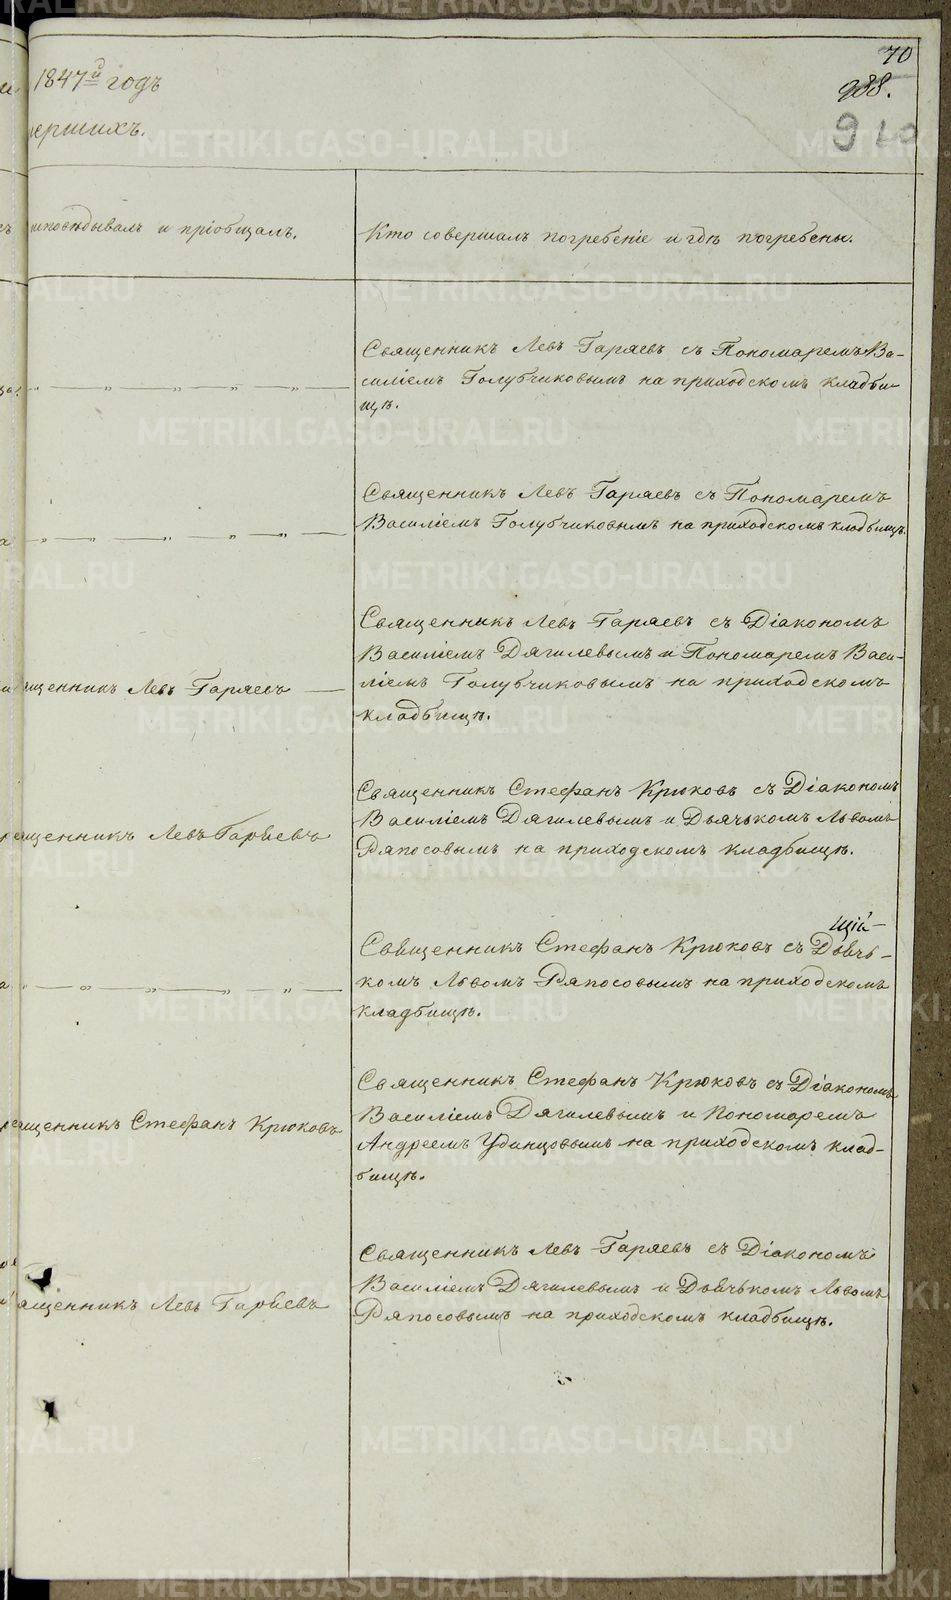 70
1847й годъ
988.
910
мершихъ.
исповѣдывалъ и пріобщалъ.
Кто совершалъ погребеніе и гдѣ погребены.
Священникъ Левъ Гаряевъ съ Пономаремъ Ва-
силіемъ Голубчиковымъ на приходскомъ кладби-
щѣ.
Священникъ Левъ Гаряевъ съ Пономаремъ
Василіемъ Голубчиковымъ на приходскомъ кладбищѣ.
Священникъ Левъ Гаряевъ
Священникъ Левъ Гаряевъ съ Діакономъ
Василіемъ Дягилевымъ и Пономаремъ Васи-
ліемъ Голубчиковымъ на приходскомъ
кладбищѣ.
Священникъ Левъ Гаряевъ
Священникъ Стефанъ Крюковъ съ Діакономъ
Василіемъ Дягилевымъ и Дьячькомъ Львомъ
Ряпосовымъ на приходскомъ кладбищѣ.
Священникъ Стефанъ Крюковъ съ Дьячь-
комъ Львомъ Ряпосовымъ на приходскомъ
кладбищѣ.
Священникъ Стефанъ Крюковъ
Священникъ Стефанъ Крюковъ съ Діакономъ
Василіемъ Дягилевымъ и Пономаремъ
Андреемъ Удинцовымъ на приходскомъ клад-
бищѣ.
Священникъ Левъ Гаряевъ
Священникъ Левъ Гаряевъ съ Діакономъ
Василіемъ Дягилевымъ и Дьячькомъ Львомъ
Ряпосовымъ на приходскомъ кладбищѣ.
METRIKI.GASO-URAL.RU